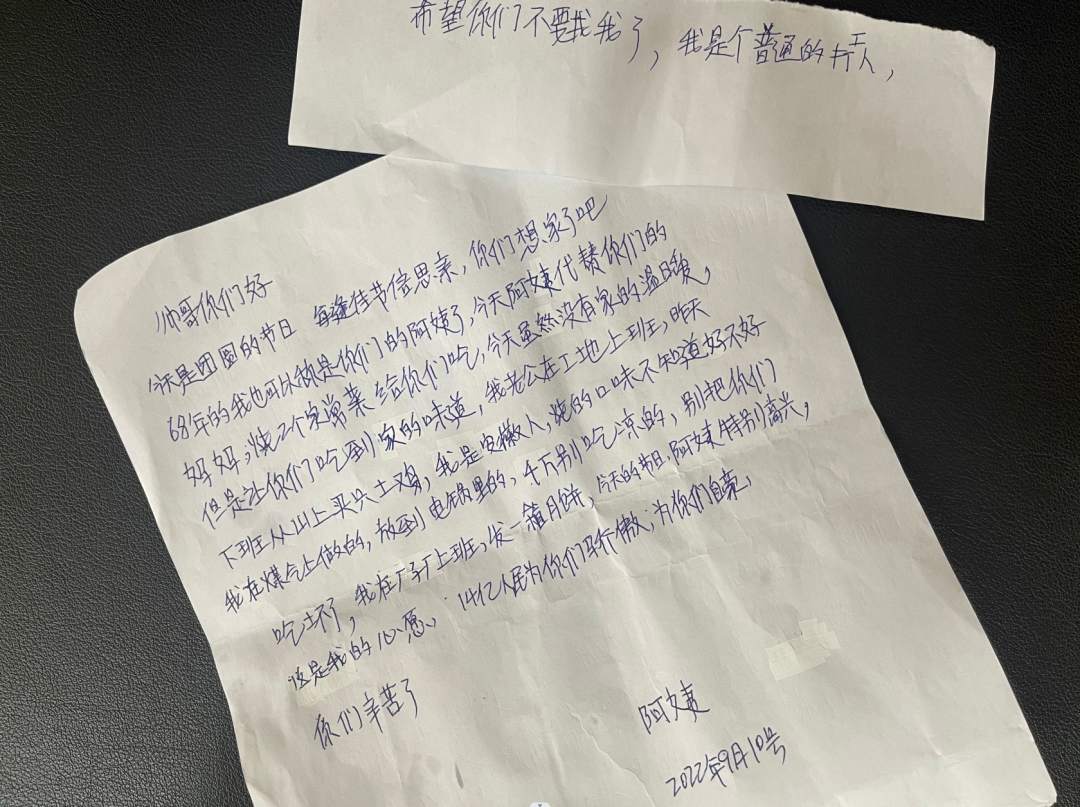 希望你们不要找我了，我是个普通的打工人，
帅哥你们好
今天是团圆的节日 每逢佳节倍思亲，你们想家了吧
68年的我也可以说是你们的阿姨了，今天阿姨代替你们的
妈妈，烧2个家常菜给你们吃，今天虽然没有家的温暖，
但是让你们吃到家的味道，我老公在工地上班，昨天
下班从山上买只土鸡，我是安徽人，烧的口味不知道好不好
我在煤气上做的，放到电锅里的，千万别吃凉的，别把你们
吃坏了，我在厂子上班，发一箱月饼，今天的节日，阿姨特别高兴，
这是我的心愿、14亿人民为你们骄傲，为你们自豪，
你们辛苦了
阿姨
2022年9月10号